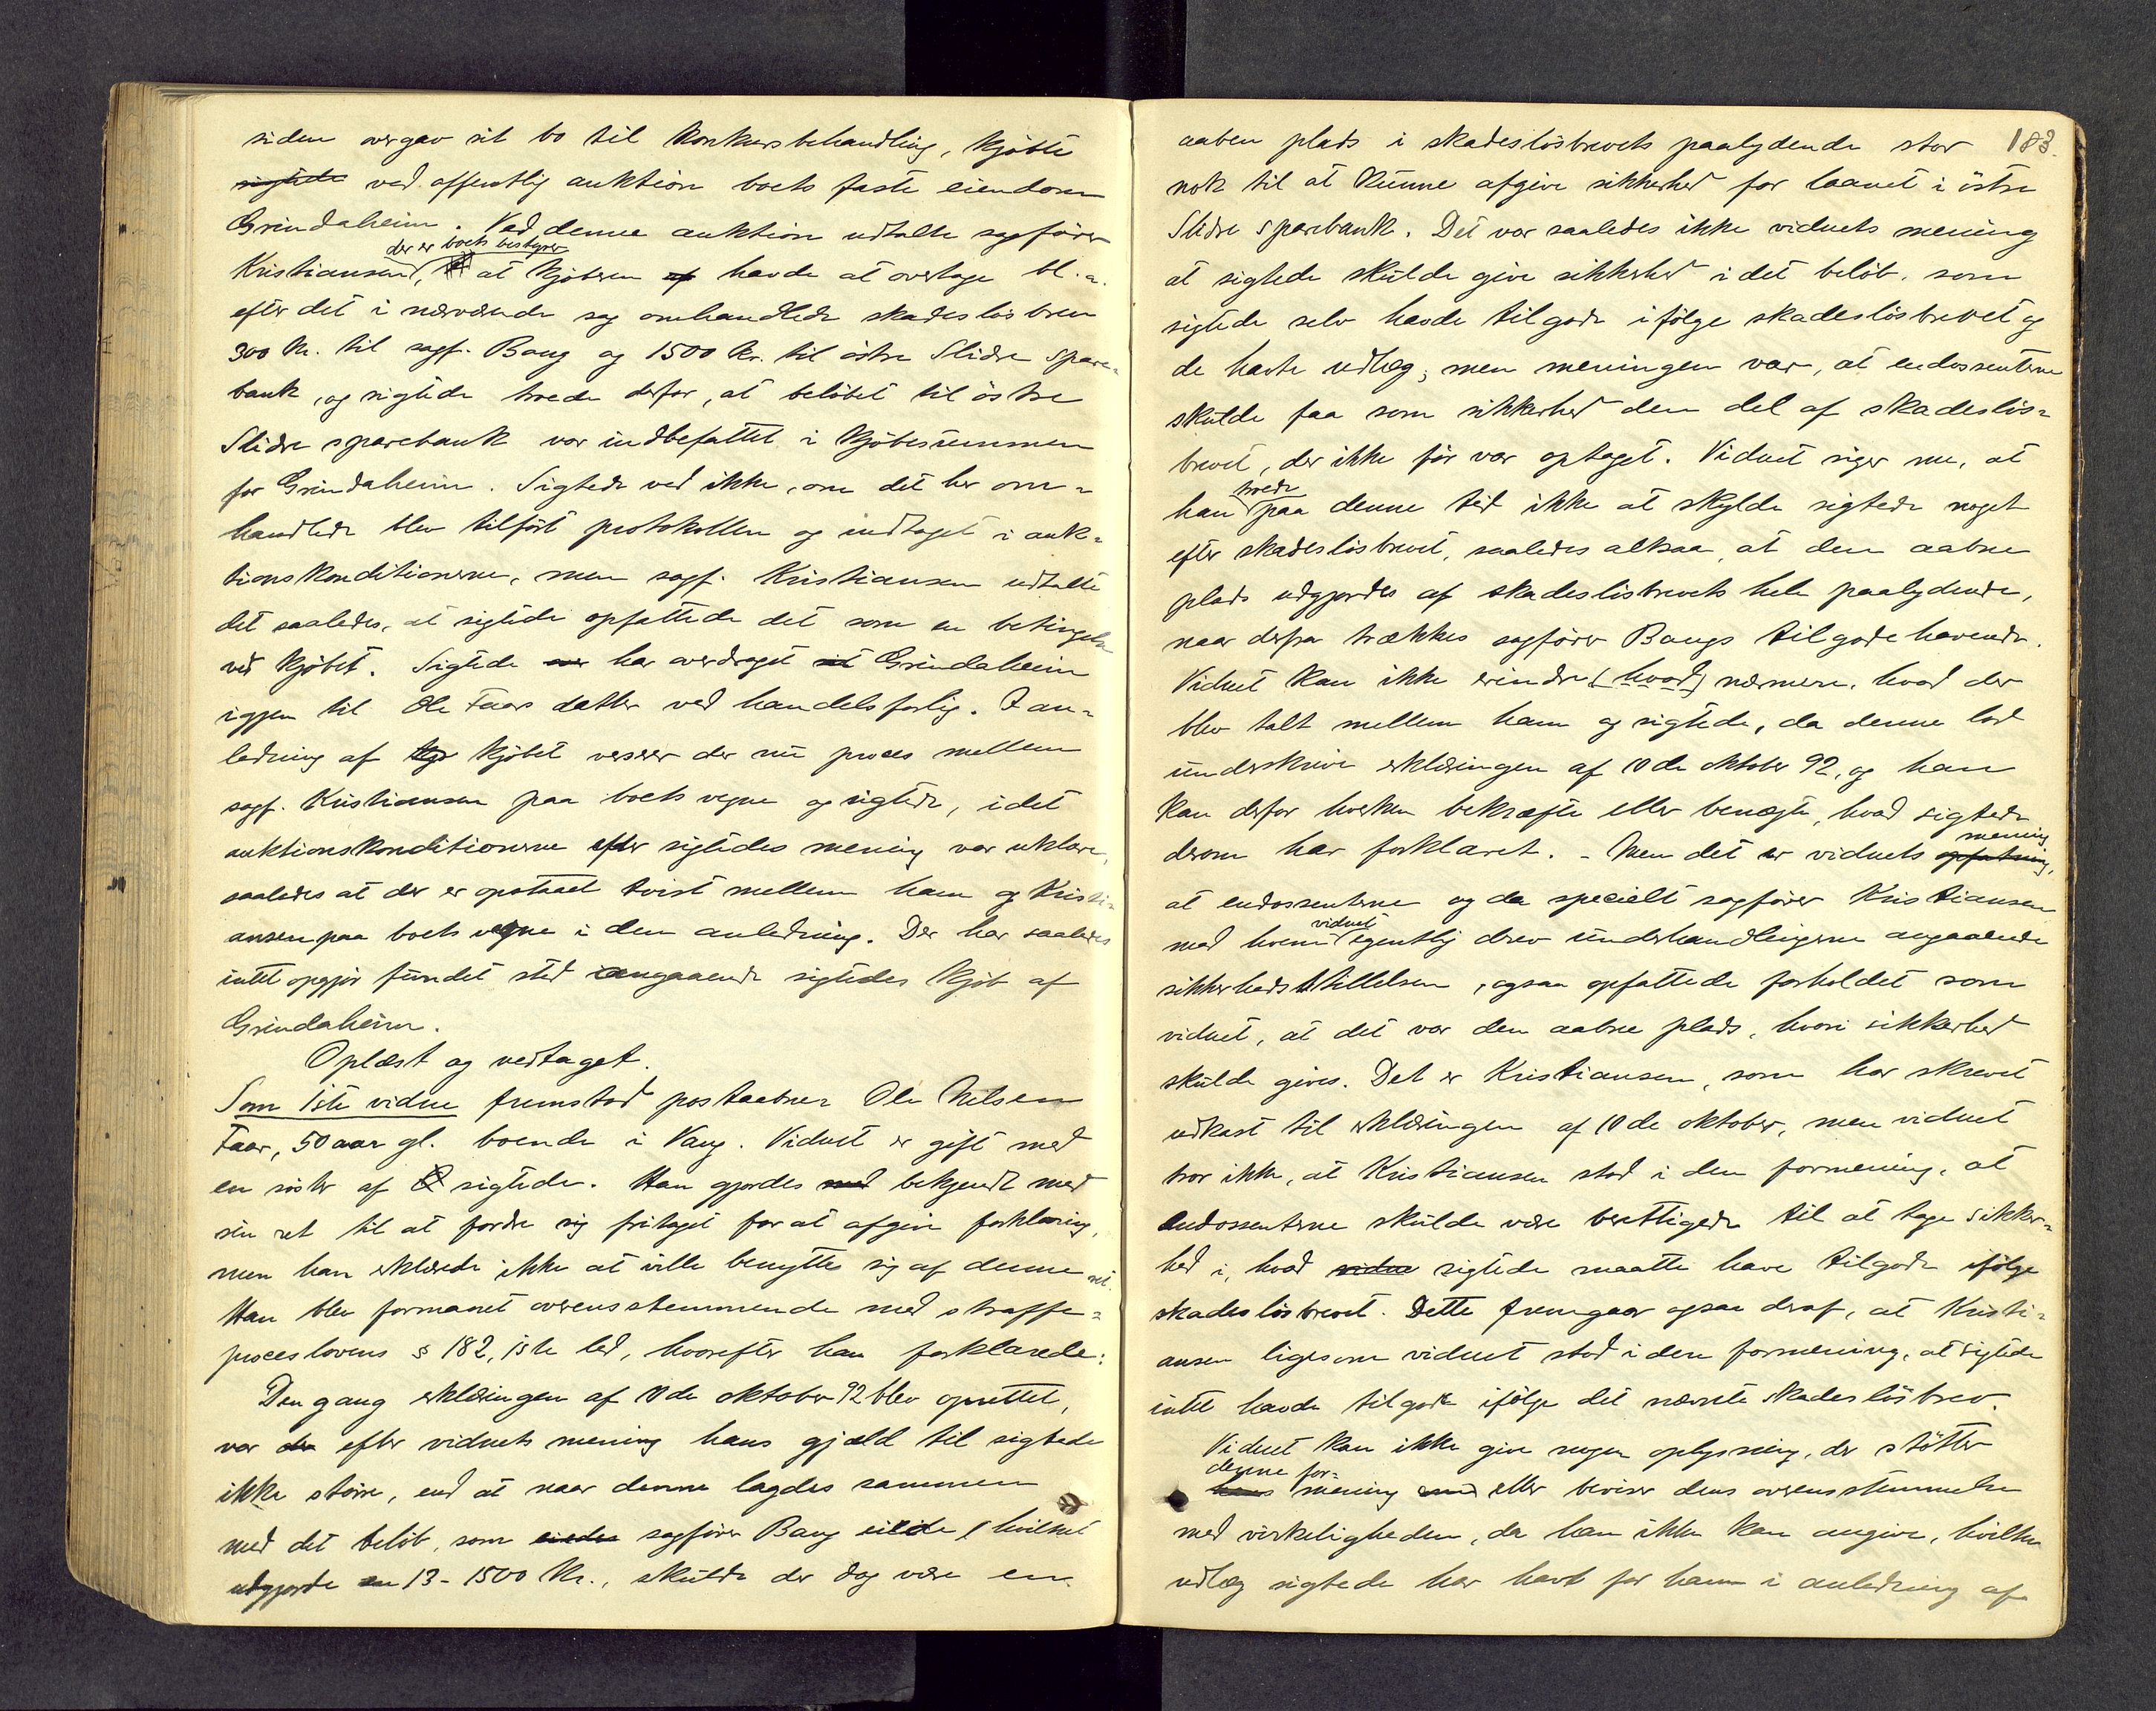 siden overgav sit bo til konkursbehandling, kjøbte
sigtede ved offentlig auktion boets faste eiendom
Grindaheim. Ved denne auktion udtalte sagfører
der er boets bestyrer
Kristiansen, at kjøberen af havde at overtage bl. a.
efter det i nærværende sag omhandlede skadesløsbrev
300 kr. til sagf. Baug og 1500 kr. til østre Slidre spare-
bank, og sigtede troede derfor, at beløbet til østre
Slidre sparebank var indbefattet i kjøbesummen
for Grindaheim. Sigtede ved ikke, om det her om-
handlede blev tilført protokollen og indtaget i auk-
tionskonditionerne, men sagf. Kristiansen udtalte
det saaledes, at sigtede opfattede det som en betingelse
ved kjøbet. Sigtede har overdraget Grindaheim
igjen til Ole Faars datter ved handelsforlig. I an-
ledning af kjøbet verserer der nu proces mellem
sagf. Kristiansen paa boets vegne og sigtede, idet
auktionskonditionerne efter sigtedes mening var uklare,
saaledes at der er opstaaet tvist mellem ham og Kristi-
ansen paa boets vegne i den anledning. Der har saaledes
intet opgjør fundet sted angaaende sigtedes kjøb af
Grindaheim.
Oplæst og vedtaget.
Som 1ste vidne fremstod postaabner Ole Nilsen
Faar, 50 aar gl. boende i Vang. Vidnet er gift med
en søster af sigtede. Han gjordes med bekjendt med
sin ret til at fordre sig fritaget for at afgive forklaring,
men han erklærede ikke at ville benytte sig af denne ret.
Han blev formanet overensstemmende med straffe-
proceslovens § 182, 1ste led, hvorefter han forklarede:
Den gang erklæringen af 10de oktober 92 blev oprettet,
var den efter vidnets mening hans gjæld til sigtede
ikke større, end at naar denne lagdes sammen
med det beløb, som eiede sagfører Baug eiede, hvilket
udgjorde en 13-1500 kr., skulde der dog være en
183.
aaben plads i skadesløsbrevets paalydende stor
nok til at kunne afgive sikkerhed for laanet i østre
Slidre sparebank. Det var saaledes ikke vidnets mening
at sigtede skulde give sikkerhed i det beløb, som
sigtede selv havde tilgode ifølge skadesløsbrevet og
de havte udlæg; men meningen var, at endossenterne
skulde faa som sikkerhed den del af skadesløs-
brevet, der ikke før var optaget. Vidnet siger nu, at
troede
han paa denne tid ikke at skylde sigtede noget
efter skadesløsbrevet, saaledes altsaa, at den aabne
plads udgjordes af skadesløsbrevets hele paalydende,
naar derfra trækkes sagfører Baugs tilgodehavende.
Vidnet kan ikke erindre (hvad) nærmere, hvad der
blev talt mellem ham og sigtede, da denne lod
underskrive erklæringen af 10de oktober 92, og han
kan derfor hverken bekræfte eller benægte, hvad sigtede
mening
derom har forklaret. - Men det er vidnets opfatning,
at endossenterne og da specielt sagfører Kristiansen
vidnet
med hvem egentlig drev underhandlingerne angaaende
sikkerhedsstillelsen, ogsaa opfattede forholdet som
vidnet, at det var den aabne plads, hvori sikkerhed
skulde gives. Det er Kristiansen, som har skrevet
udkast til erklæringen af 10de oktober, men vidnet
tror ikke, at Kristiansen stod i den formening, at
endossenterne skulde være berettigede til at tage sikker-
hed i, hvad vidne sigtede maatte have tilgode ifølge
skadesløsbrevet. Dette fremgaar ogsaa deraf, at Kristi-
ansen ligesom vidnet stod i den formening, at sigtede
intet havde tilgode ifølge det nævnte skadesløsbrev.
Vidnet kan ikke give nogen oplysning, der støtter
denne for-
hans mening eller beviser dens overensstemmelse
med virkeligheden, da han ikke kan angive, hvilke
udlæg sigtede har havt for ham i anledning af